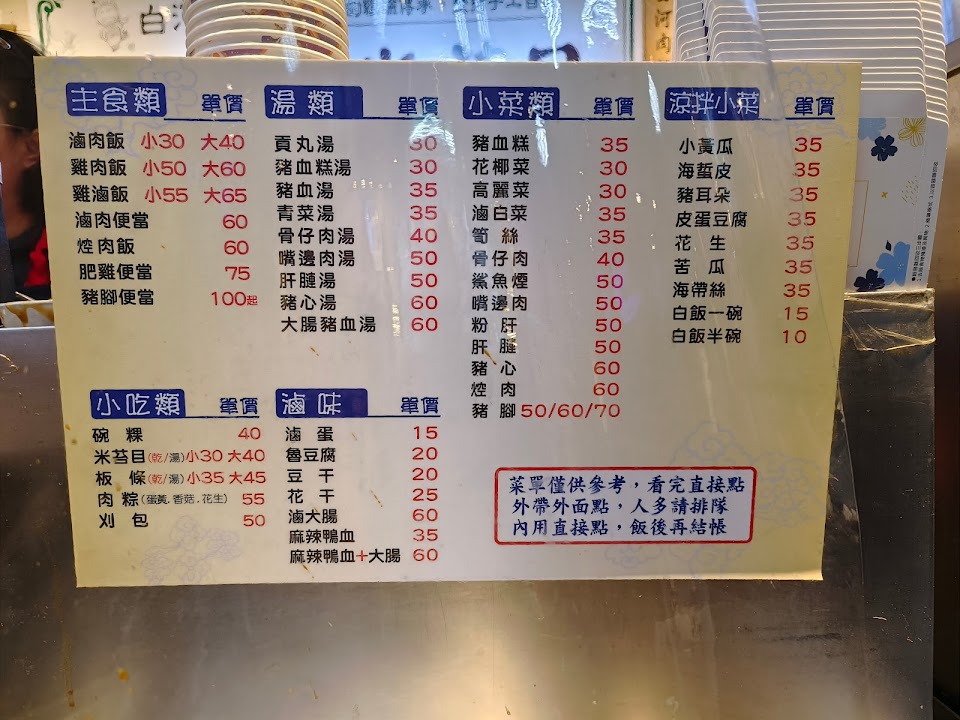 主食類 單價
滷肉飯 小30 大40
雞肉飯 小50 大60
雞滷飯 小55 大65
滷肉便當 60
焢肉飯 60
肥雞便當 75
豬腳便當 100起
湯類 單價
貢丸湯 30
豬血糕湯 30
豬血湯 35
青菜湯 35
骨仔肉湯 40
嘴邊肉湯 50
肝腱湯 50
豬心湯 60
大腸豬血湯 60
小菜類 單價
豬血糕 35
花椰菜 30
高麗菜 30
滷白菜 35
筍絲 35
骨仔肉 40
鯊魚煙 50
嘴邊肉 50
粉肝 50
肝腱 50
豬心 60
焢肉 60
豬腳 50/60/70
涼拌小菜 單價
小黃瓜 35
海蜇皮 35
豬耳朵 35
皮蛋豆腐 35
花生 35
苦瓜 35
海帶絲 35
白飯一碗 15
白飯半碗 10
小吃類 單價
碗粿 40
米苔目(乾/湯)小30 大40
板條(乾/湯)小35 大45
肉粽(蛋黃.香菇.花生) 55
刈包 50
滷味 單價
滷蛋 15
魯豆腐 20
豆干 20
花干 25
滷大腸 60
麻辣鴨血 35
麻辣鴨血+大腸 60
菜單僅供參考，看完直接點
外帶外面點，人多請排隊
內用直接點，飯後再結帳